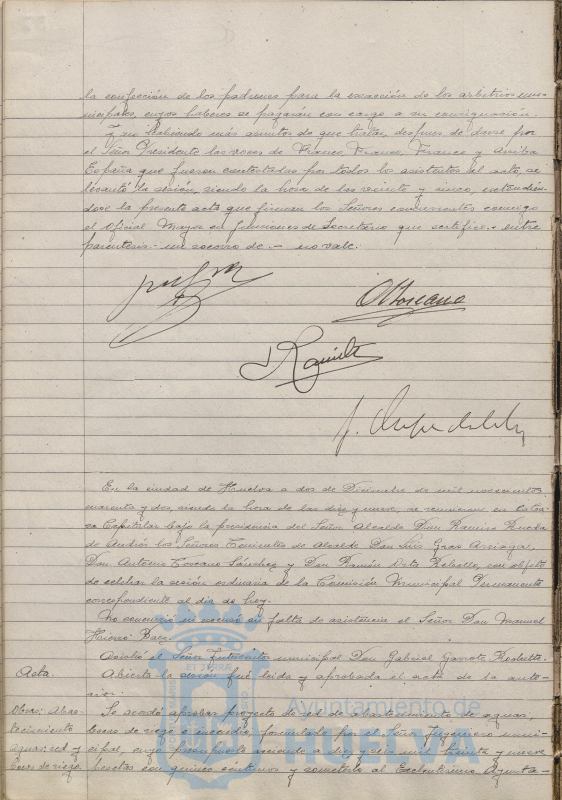 la confección de los padrones para la exacción de los arbitrios mu-
nicipales, cuyos haberes se pagarán con cargo a su consignación.
Y no habiendo más asuntos de que tratar, despues de darse por
el Señor Presidente las voces de Franco, Franco, Franco y Arriba
España que fueron contestadas por todos los asistentes al acto, se
levantó la sesión, siendo la hora de las veinte y cinco, extendién-
dose la presente acta que firman los Señores concurrentes conmigo
el Oficial Mayor en funciones de Secretario que certifico.- entre
parentesis:- un socorro de.- no vale.
A Toscano
En la ciudad de Huelva a dos de Diciembre de mil novecientos
cuarenta y dos, siendo la hora de las diez y nueve, se reunieron en esta Ca-
sa Capitular bajo la presidencia del Señor Alcalde Don Ramiro Rueda
de Andrés los Señores Tenientes de Alcalde Don Luis Gras Arriaga,
Don Antonio Toscano Sánchez y Don Ramón Rebollo, con objeto
de celebrar la sesión ordinaria de la Comisión Municipal Permanente
correspondiente al dia de hoy.
No concurrió ni excusó su falta de asistencia el Señor Don Manuel
Hierro
Asistió el Señor Interventor municipal Don Gabriel Garrote
Acta.
Abierta la sesión fué leida y aprobada el acta de la ante-
rior.
Obras: Abas-
tecimiento
aguas, red y
bocas de riego.
Se acordó aprobar proyecto de red de abastecimiento de aguas,
bocas de riego e incendio, formulado por el Señor Ingeniero muni-
cipal, cuyo presupuesto asciende a diez y seis mil treinta y nueve
pesetas con quince céntimos y someterlo al Excelentísimo Ayunta-
Ayuntamiento de
HUELVA